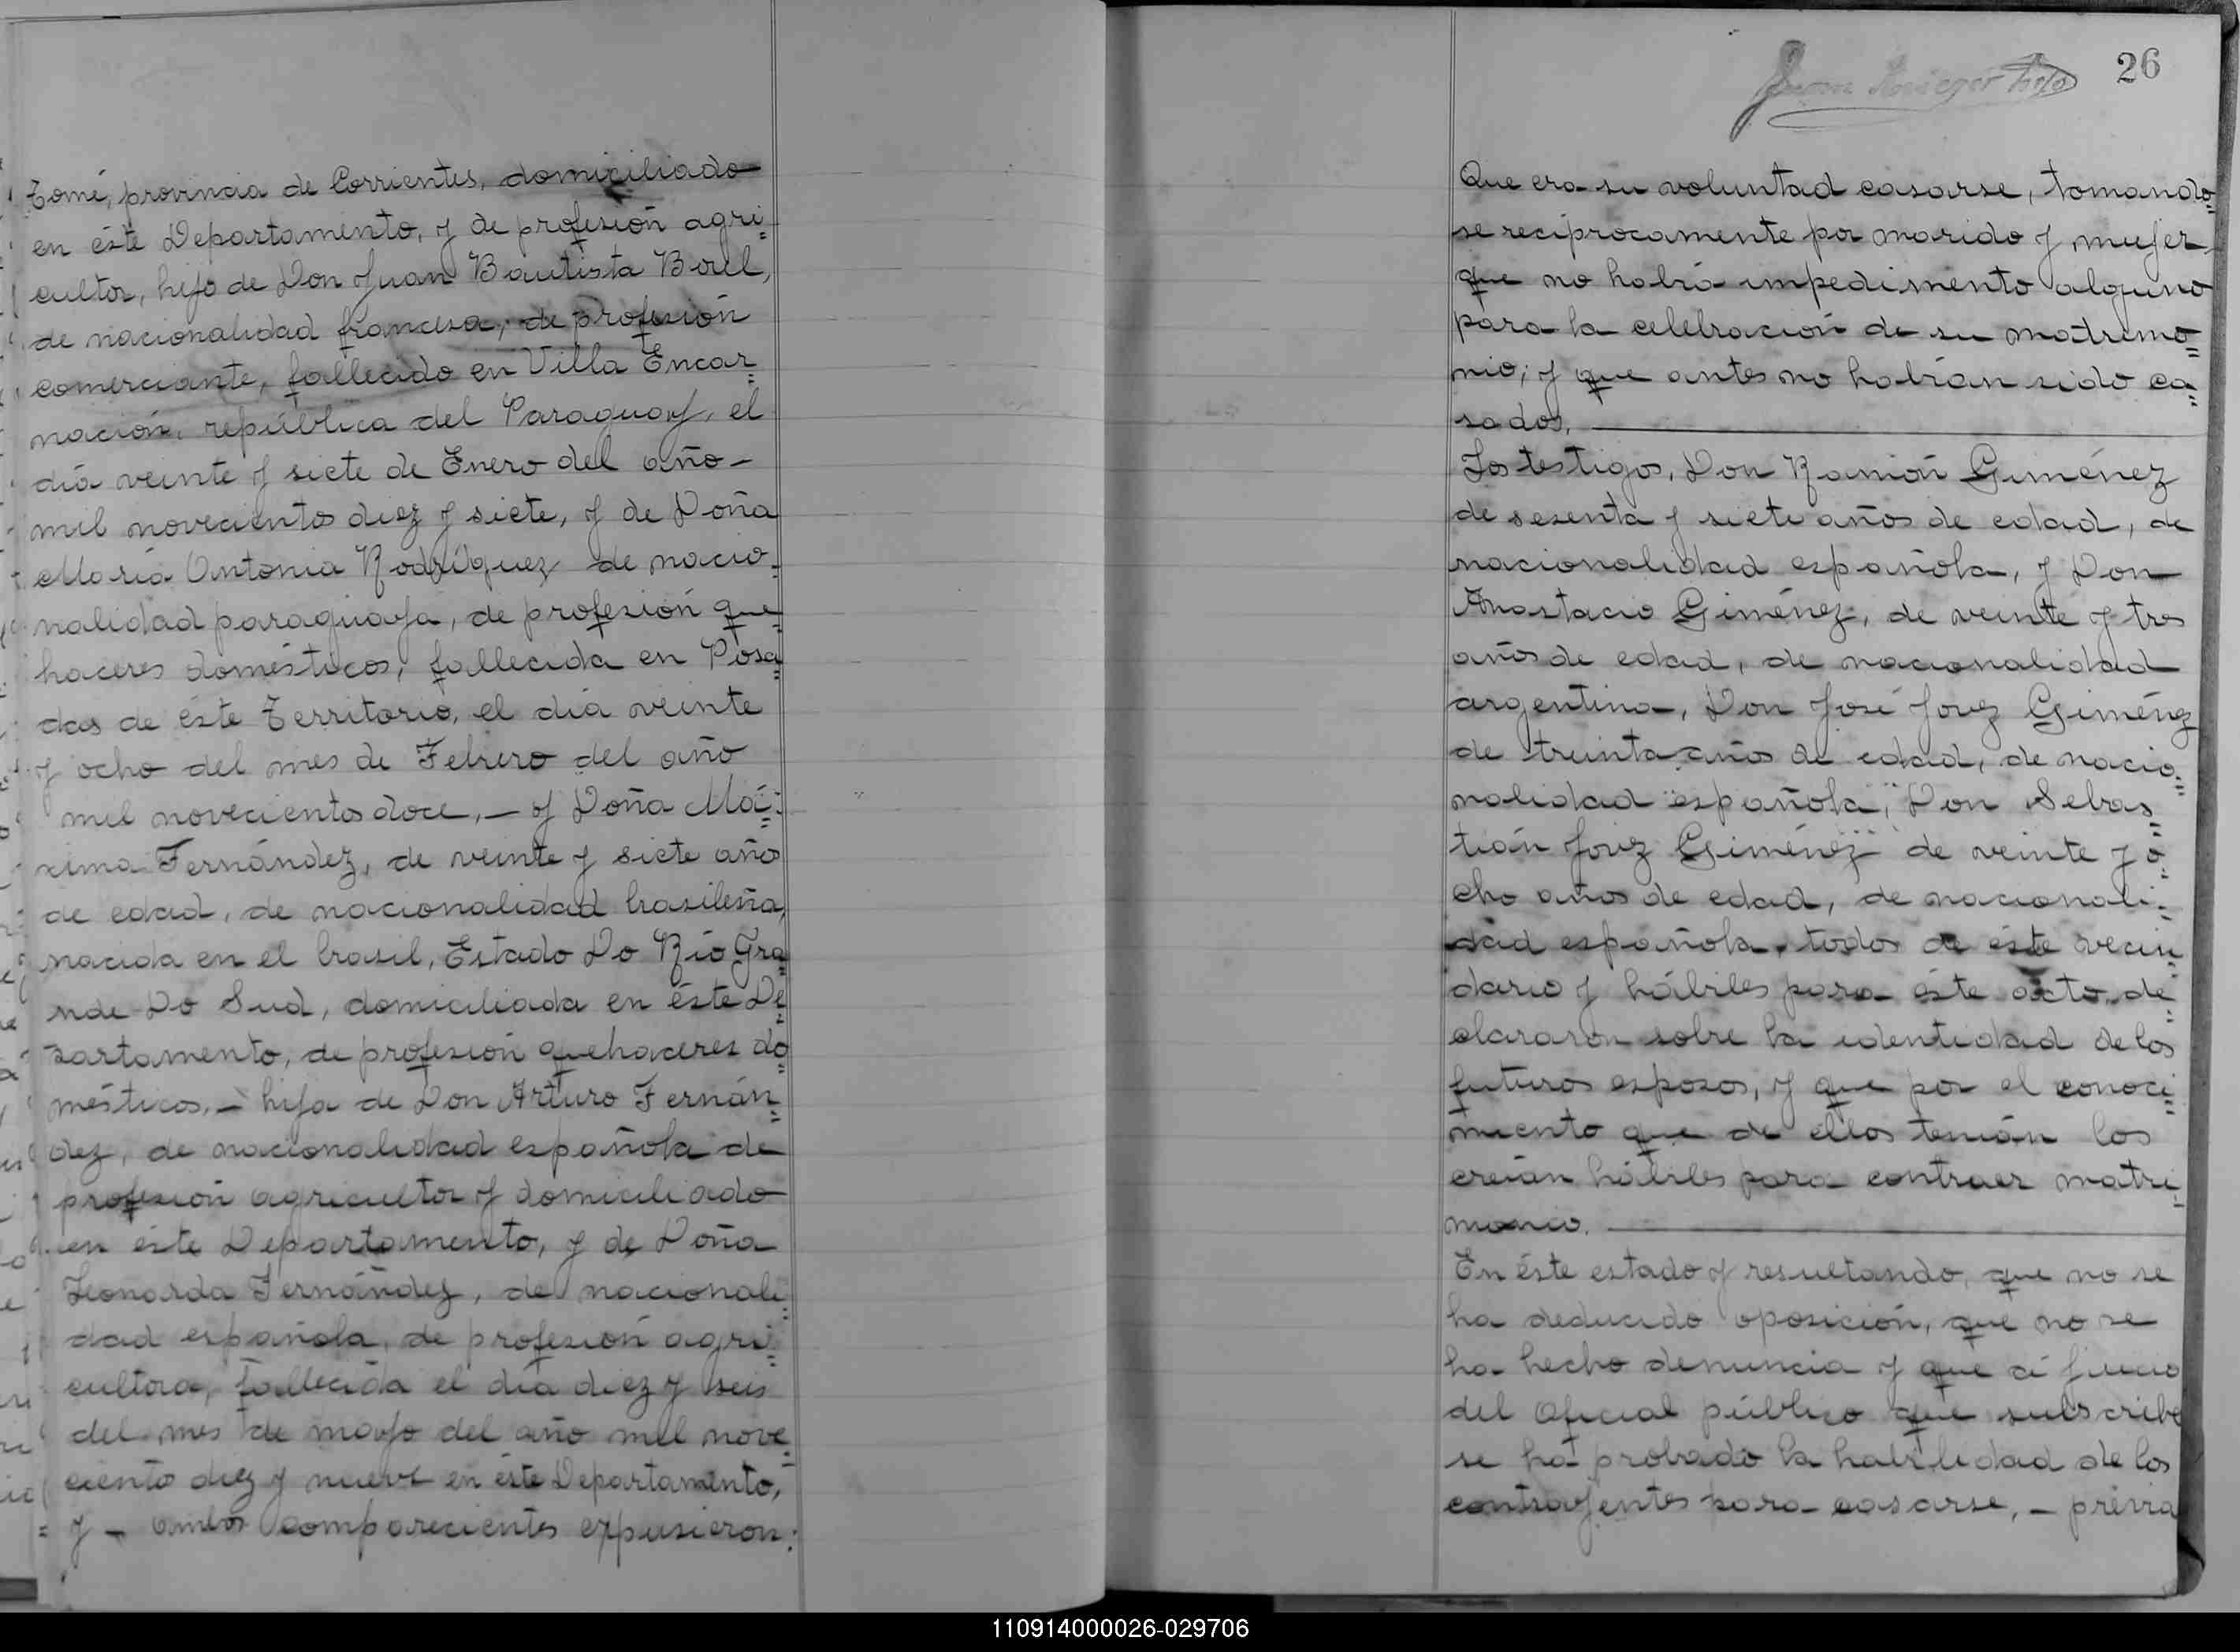 Tomé, provincia de Corrientes, domiciliado
en éste Departamento, y de profesión agri=
cultor, hijo de Don Juan Bautista
de nacionalidad francesa, de profesión
comerciante, fallecido en Villa Encar=
nación, república del Paraguay, el
día veinte y siete de Enero del año -
mil novecientos diez y siete, y de Doña
María Antonia Rodríguez de nacio=
nalidad paraguaya, de profesión que=
haceres domésticos, fallecida en Posa=
das de éste Territorio, el día veinte
y ocho del mes de Febrero del año
mil novecientos doce, - y Doña Má=
xima Fernández, de veinte y siete años
de edad, de nacionalidad brasileña,
nacida en el brasil, Estado Do Río Gra=
nde Do Sud, domiciliada en éste De=
partamento, de profesión quehaceres do=
mésticos, - hija de Don Arturo Fernán=
dez, de nacionalidad española de
profesión agricultor y domiciliado
en éste Departamento, y de Doña
Leonarda Fernández, de nacionali=
dad española, de profesión agri=
cultora, fallecida el día diez y seis
del mes de mayo del año mil nove=
ciento diez y nueve en éste Departamento,
y - ambos comparecientes expusieron:
26
Juan
Que era su voluntad casarse, tomando=
se recíprocamente por marido y mujer,
que no había impedimento alguno
para la celebración de su matrimo=
nio; y que antes no habían sido ca=
sados.
Los testigos, Don Ramón Giménez
de sesenta y siete años de edad, de
nacionalidad española, y Don
Anastacio Giménez, de veinte y tres
años de edad, de nacionalidad
argentina, Don José Jovez Giménez
de treinta años de edad, de nacio=
nalidad española, Don Sebas=
tián Jovez Giménez de veinte y o=
cho años de edad, de nacionali=
dad española, todos de éste vecin=
dario y hábiles para éste acto, de=
clararon sobre la identidad de los
futuros esposos, y que por el conoci=
miento que de éllos tenían los
creían hábiles para contraer matri=
monio.
En éste estado y resultando, que no se
ha deducido oposición, que no se
ha hecho denuncia y que á juicio
del Oficial público que subscribe
se há probado la habilidad de los
contrayentes para casarse, - prévia
110914000026-029706